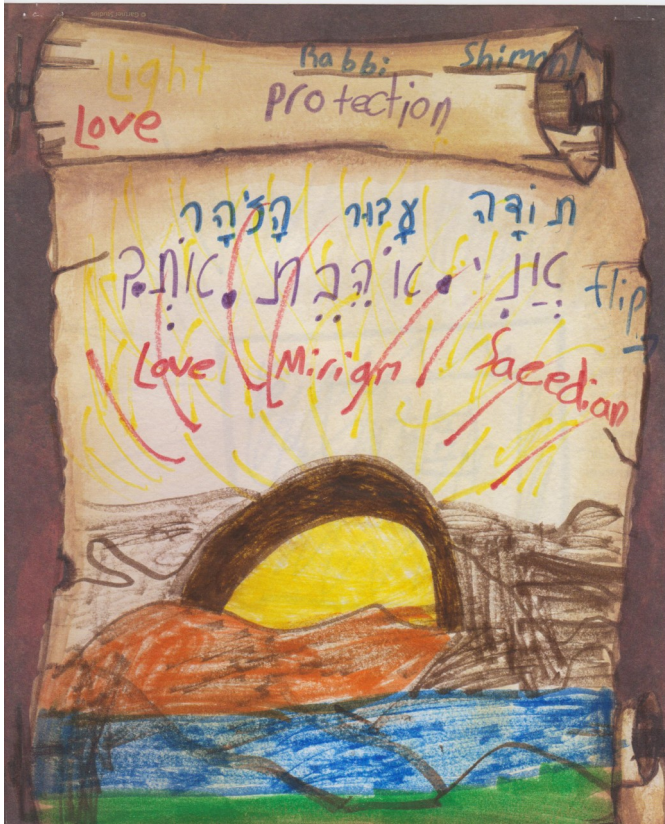 Light Rabbi
Love Protection
תוֹדָה עָבוּר הָזֹהָר
אֲנִי אוֹהֵבֶת אוֹתְךָ
flip →
Love Miriam Saeedian